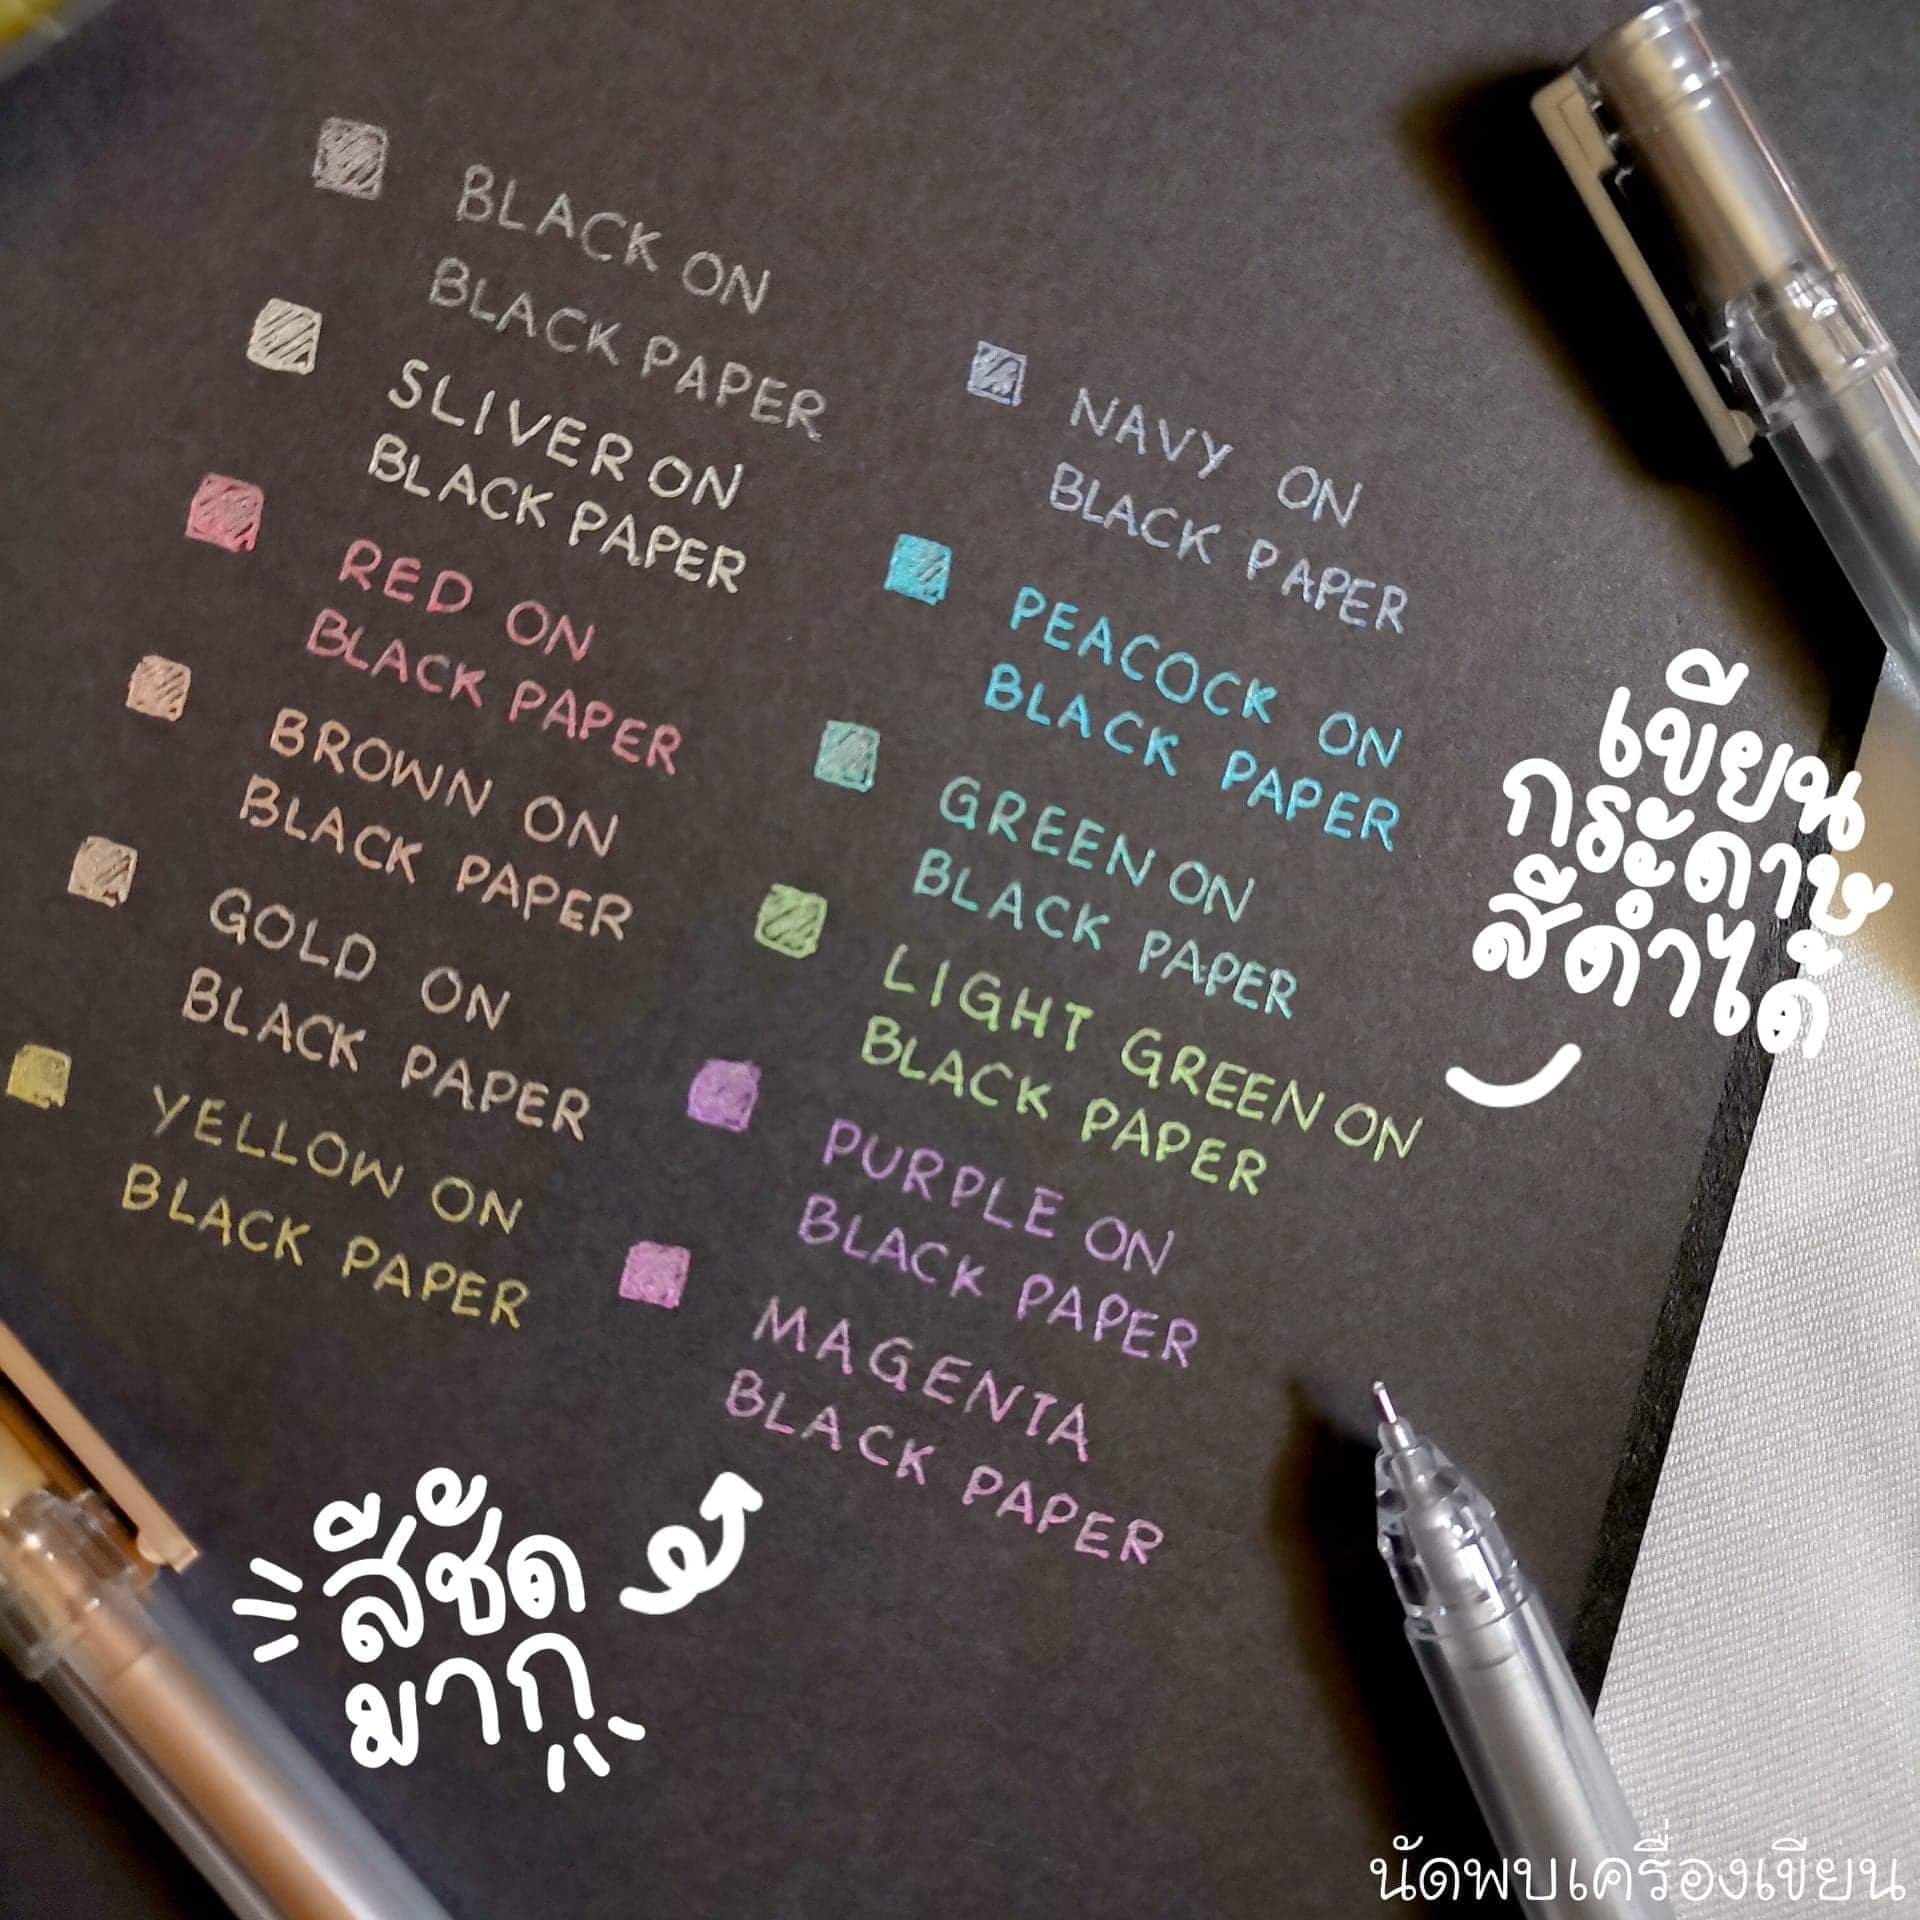 BLACK ON
BLACK PAPER
SLIVER ON
BLACK PAPER
RED ON
BLACK PAPER
BROWN ON
BLACK PAPER
GOLD ON
BLACK PAPER
YELLOW ON
BLACK PAPER
NAVY ON
BLACK PAPER
PEACOCK ON
BLACK PAPER
GREEN ON
BLACK PAPER
LIGHT GREEN ON
BLACK PAPER
PURPLE ON
BLACK PAPER
MAGENTA
BLACK PAPER
เขียน
กระดาษ
สีดำได้
สีชัด
มากู
นัดพบเครื่องเขียน